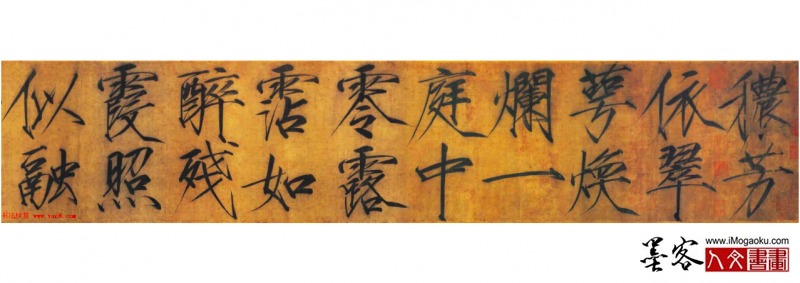 穠芳
依翠
萼煥
爛一
庭中
零露
霑如
醉殘
霞照
似融
www.iMogaoku.com
墨客
人文書畫